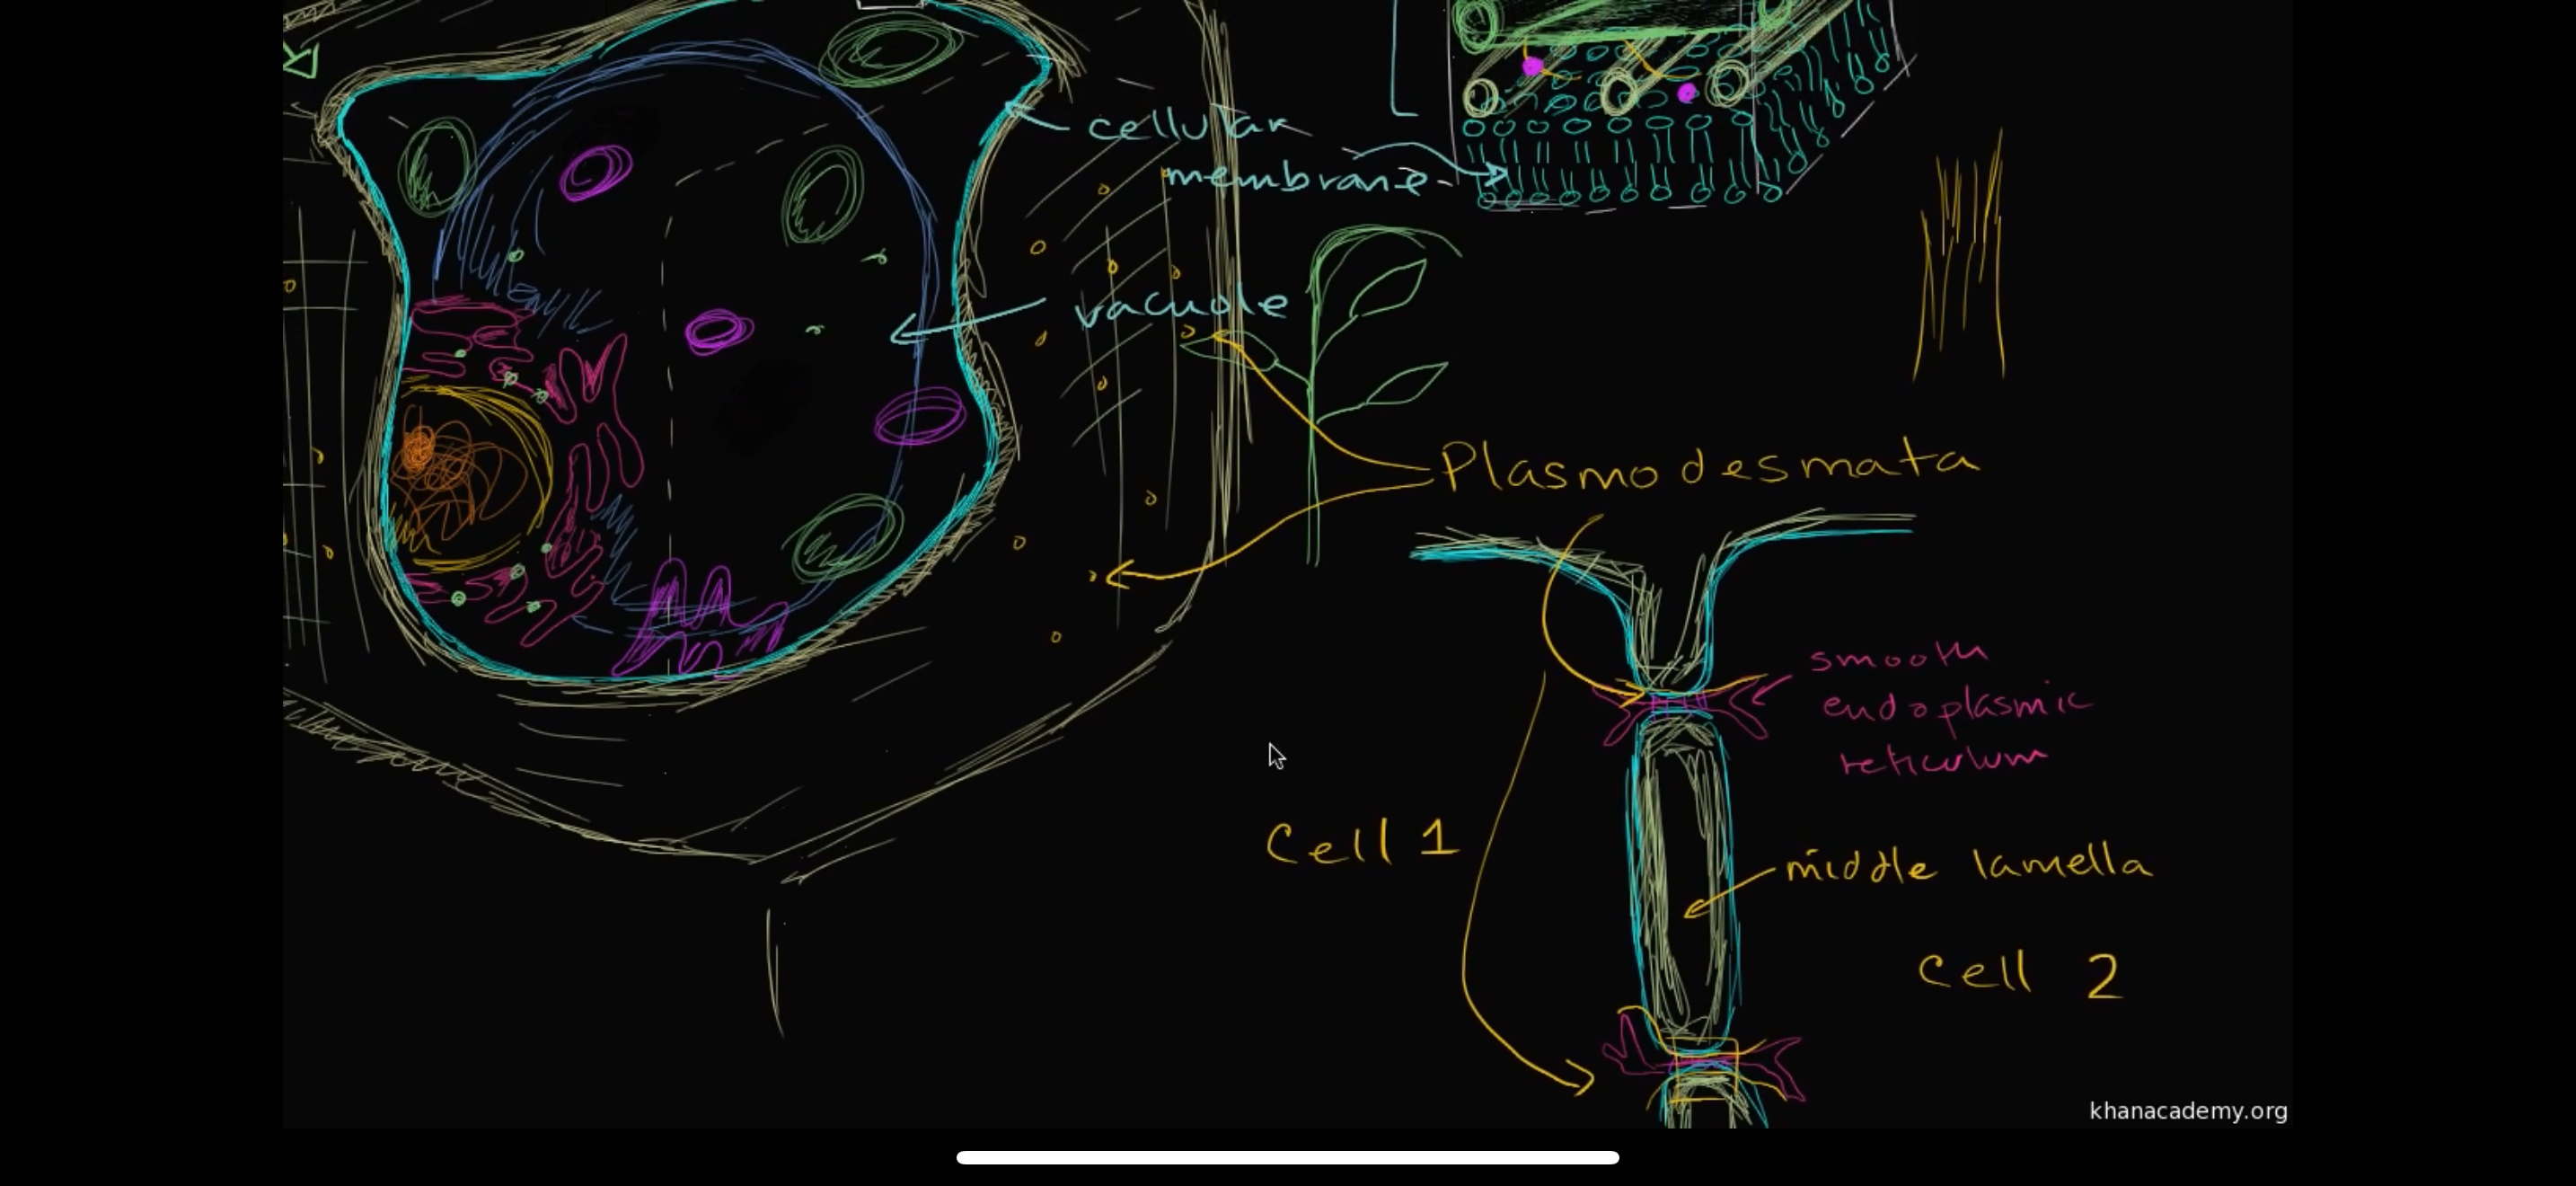 cellular
membrane
vacuole
Plasmodesmata
smooth
endoplasmic
reticulum
Cell 1
middle lamella
Cell 2
khanacademy.org